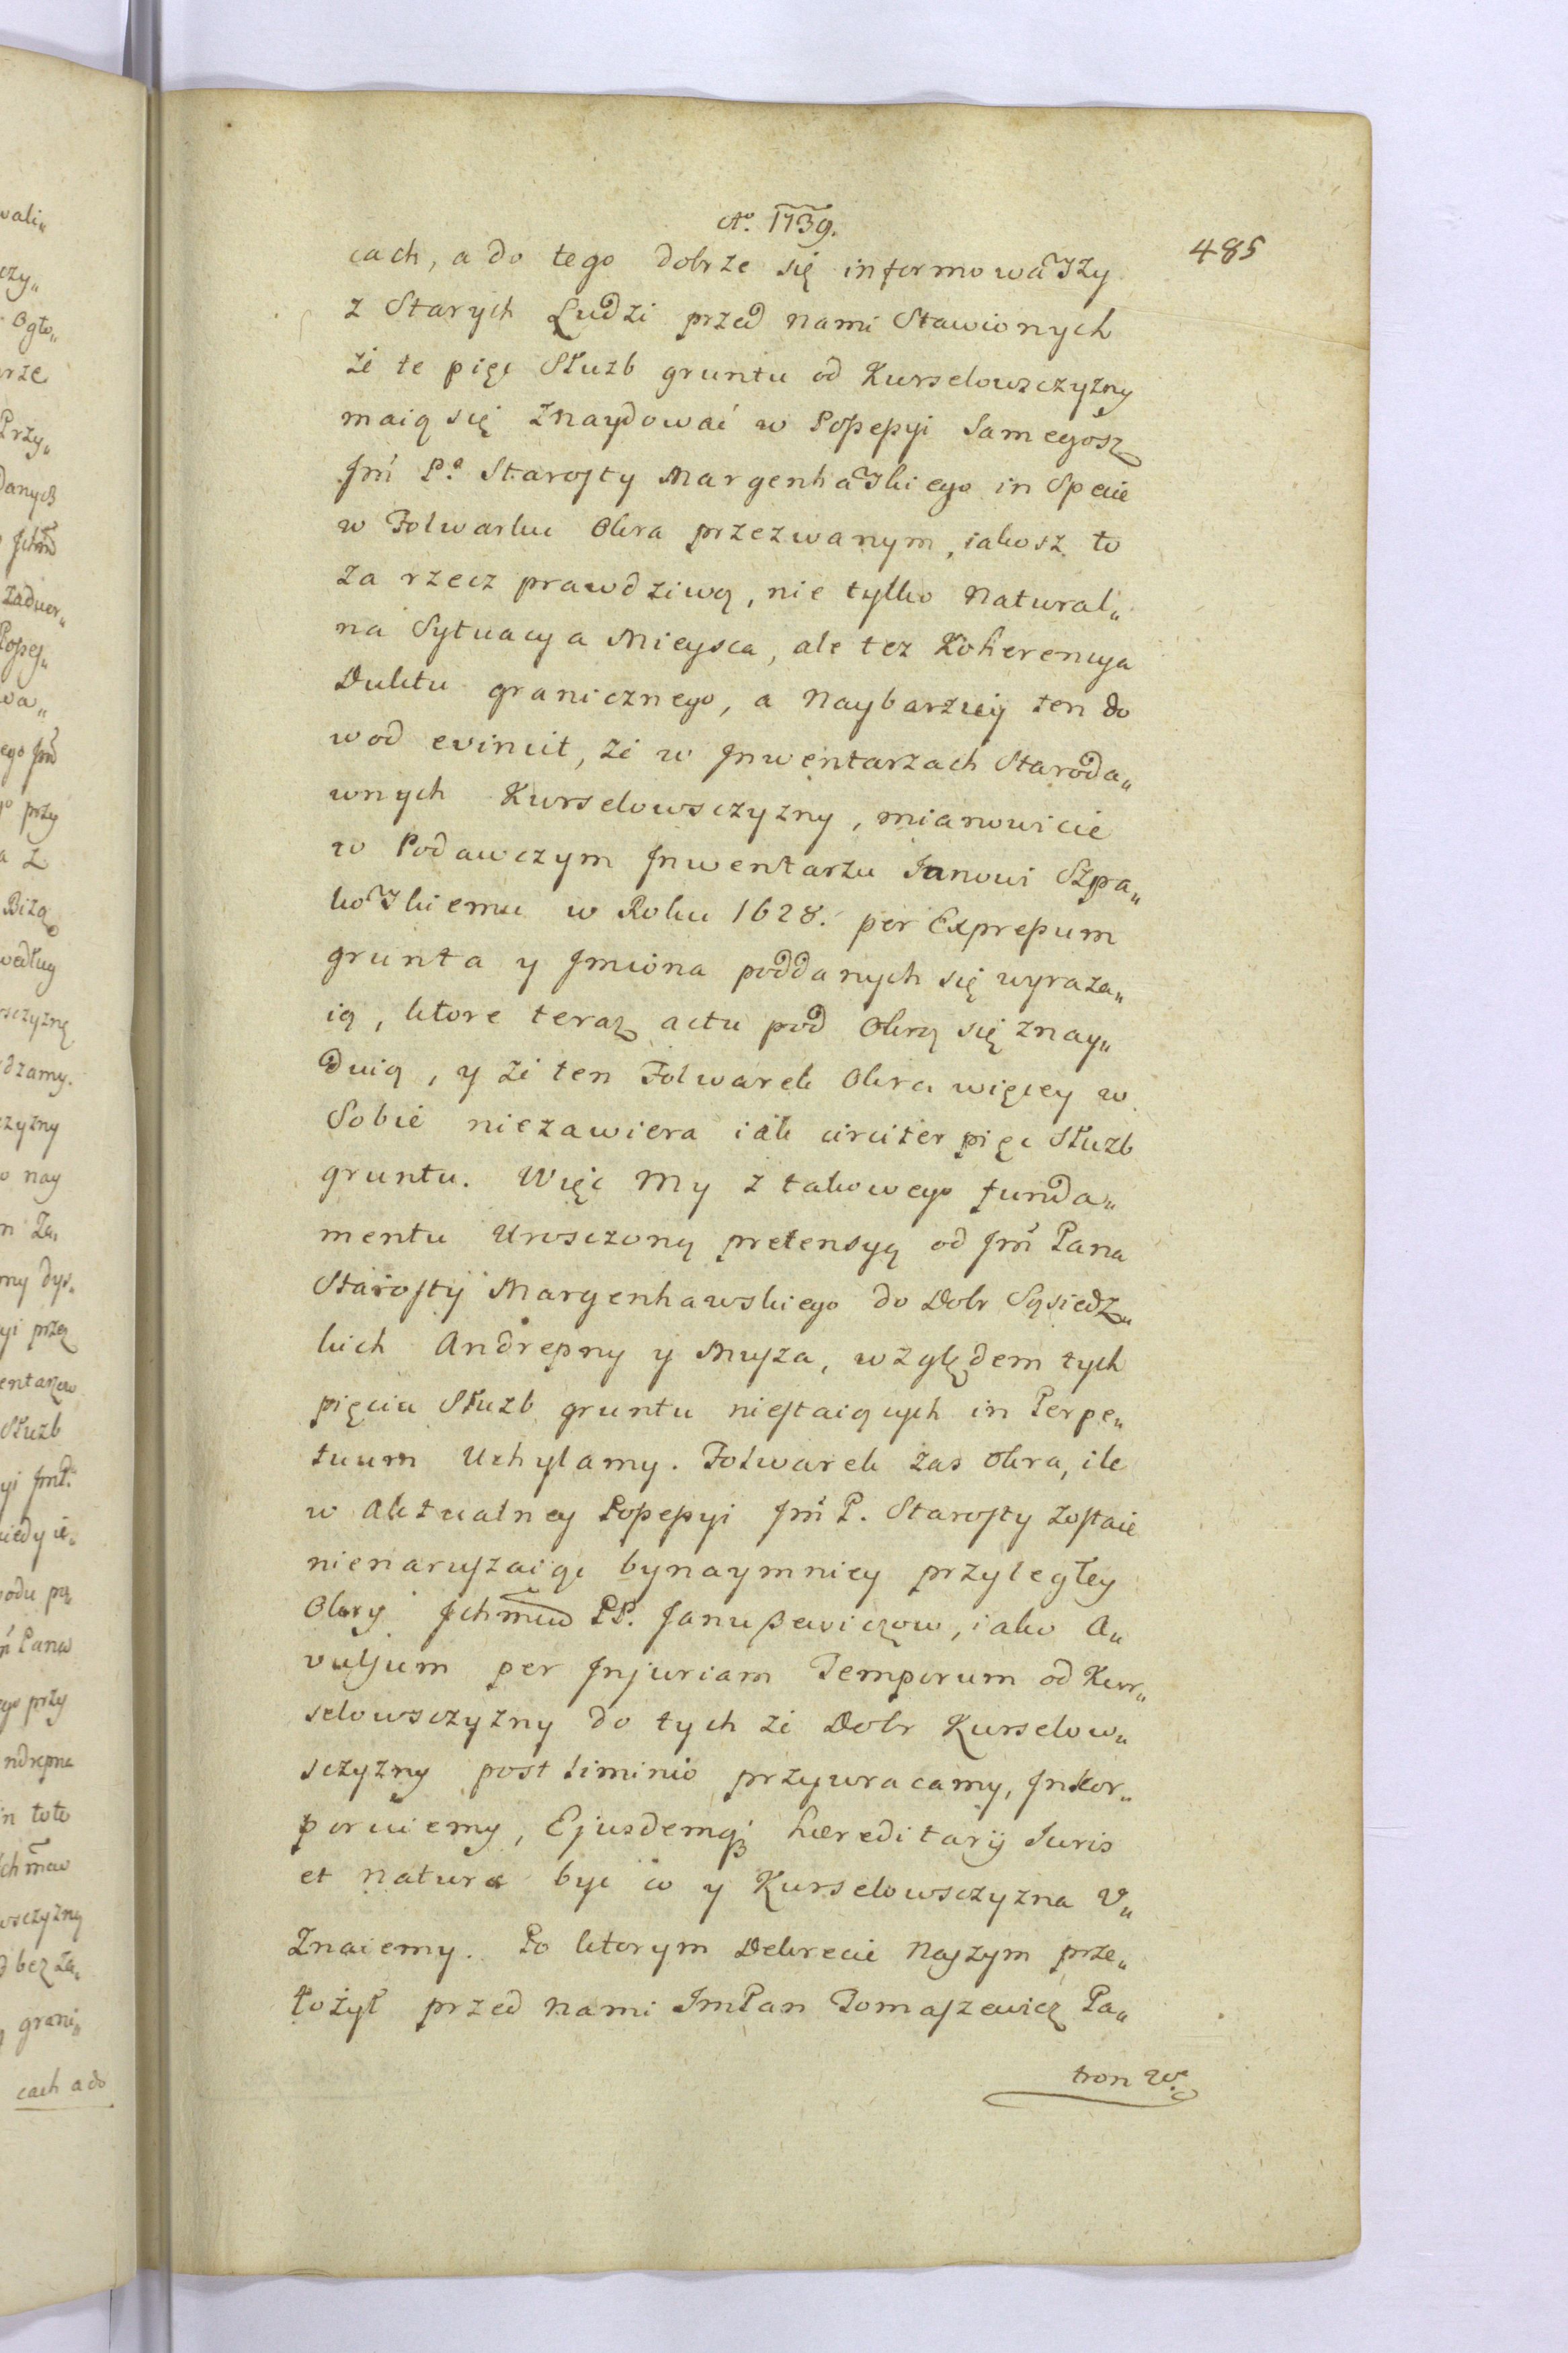 Ao. 1739.
485
cach, a do tego dobrze się informowawszy
z Starych Ludzi przed nami Stawionych
że te pięc Służb gruntu od Kurselowsczyzny
maią się Znaydowac w Possessyi Samegosz
Jmc Pa Starosty Margenhawskiego in Specie
w Folwarku Okra przezwanym, iakosz to
za rzecz prawdziwą, nie tylko Natural„
na Sytuacya Mieysca, ale tez Koherencya
Duktu granicznego, a Naybarziey ten do
wod evincit, że w Inwentarzach Staroda„
wnych Kurselowsczyzny, mianowicie
w Podawczym Inwentarzu Janowi Szpa„
kowskiemu w Roku 1628. per Expressum
grunta y Imiona poddanych się wyraza„
ią, ktore teraz actu pod Okrą się znay„
duią, y że ten Folwarek Okra więcey w
Sobie niezawiera iak circiter pięc Służb
gruntu. Więc My z takowego funda„
mentu Urosczoną pretensyą od Jmc Pana
Starosty Margenhawskiego do Dobr Sąsiedz„
kich Andrepny y Muyza, względem tych
pięciu Służb gruntu niestaiących in Perpe„
tuum Uchylamy. Folwarek zas Okra, ile
w Aktualney Possessyi Jmc P. Starosty zostaie
nienaruszaiąc bynaymniey przyległey
Okry Ichmciow PP. Januszewiczow, iako A„
vulsum per Injuriam Temporum od Kur„
selowsczyzny do tych że Dobr Kurselow„
sczyzny post liminio przywracamy, Inkor„
poruiemy, Ejusdemq; hæreditarij Juris
et Natura byc co y Kurselowsczyzna U„
Znaiemy. Po ktorym Dekrecie Naszym prze„
łożył przed nami ImPan Tomaszewicz Pa„
tron W.